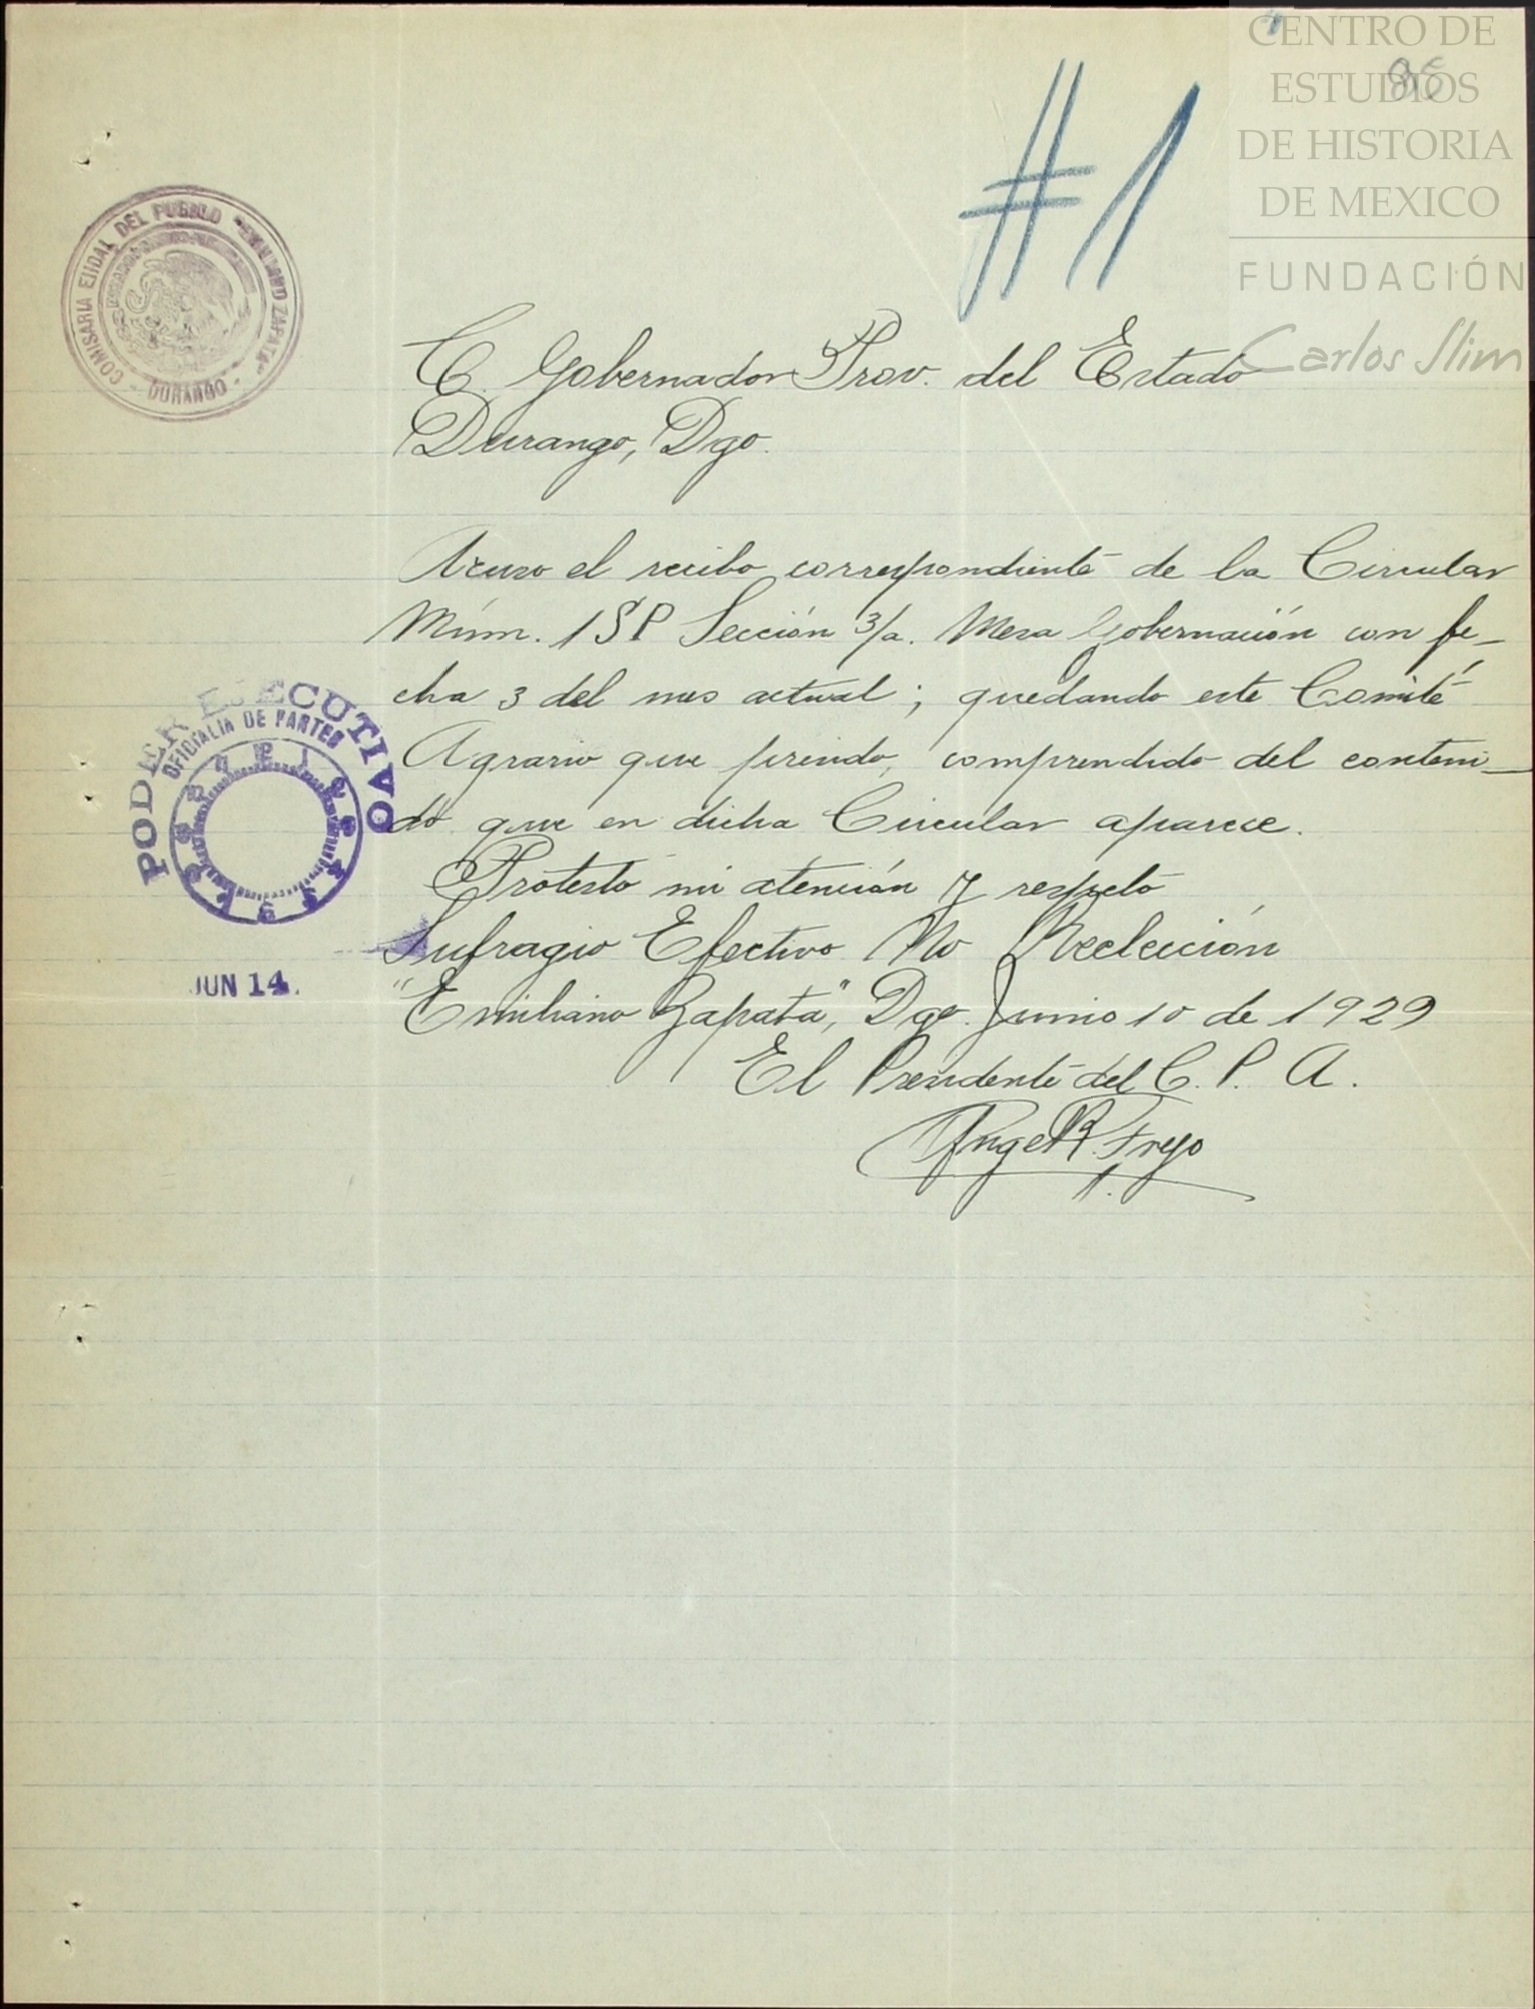 CENTRO DE
ESTUDIOS
DE HISTORIA
DE MEXICO
FUNDACIÓN
Carlos Slim
86
#1
COMISARIA EJIDAL DEL PUEBLO "EMILIANO ZAPATA"
- DURANGO -
C. Gobernador Prov. del Estado
Durango, Dgo.
Acuso el recibo correspondiente de la Circular
Núm. 1 SP Sección 3/a. Mesa Gobernación con fe-
cha 3 del mes actual; quedando este Comité
Agrario que precido, comprendido del conteni-
do que en dicha Circular aparece.
Protesto mi atención y respeto
Sufragio Efectivo No Reelección
"Emiliano Zapata," Dgo. Junio 10 de 1929
El Presidente del C. P. A.
Angel R. Trejo
PODER EJECUTIVO
OFICIALIA DE PARTES
JUN 14.